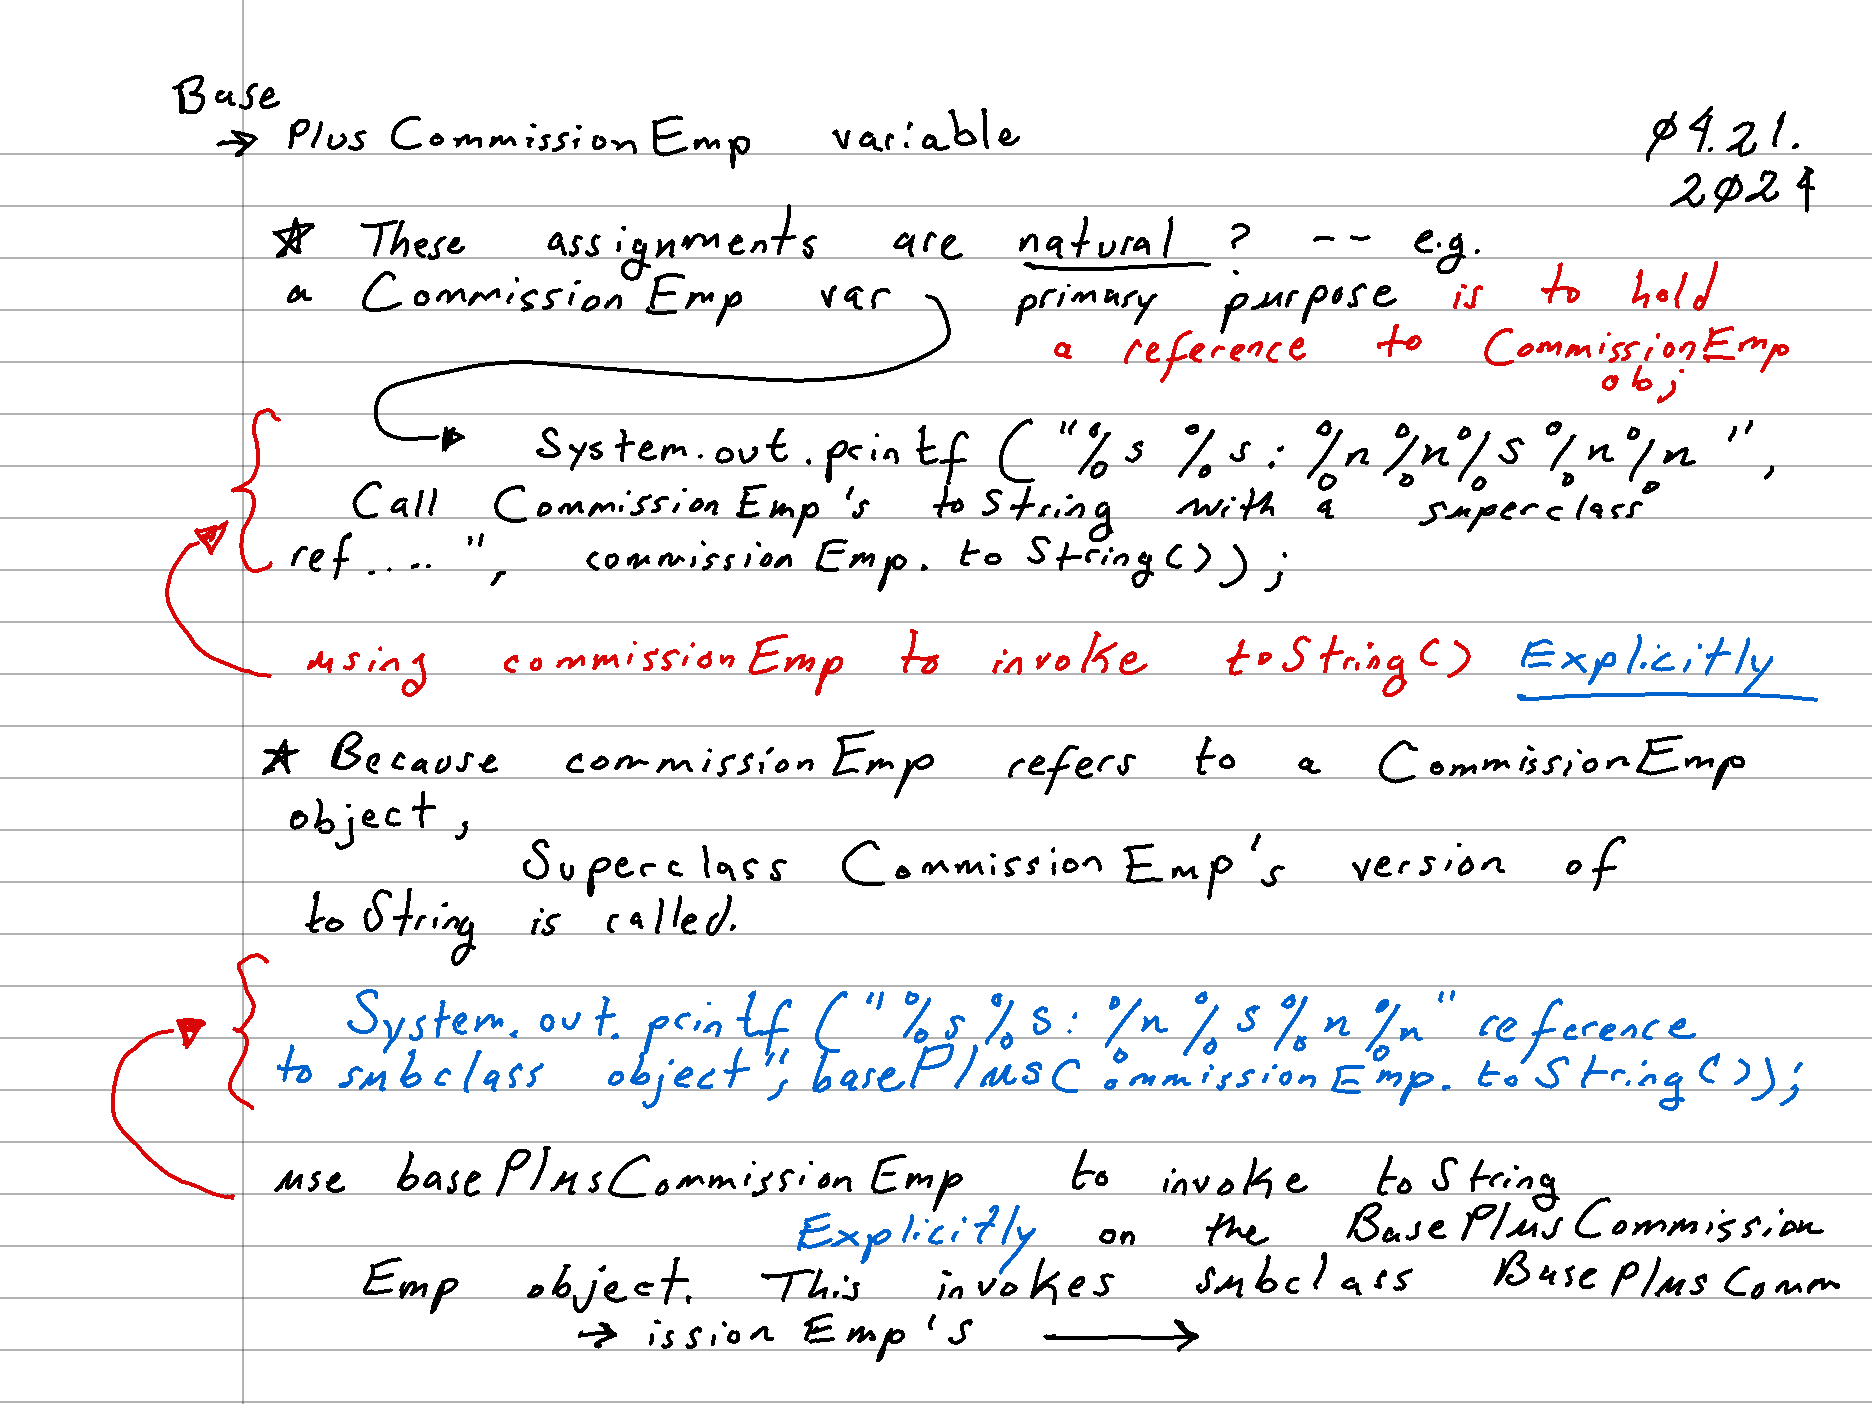 Base
→ Plus CommissionEmp variable
ø4.21.
2ø24
☆ These assignments are natural ? -- e.g.
a CommissionEmp var primary purpose is to hold
a reference to CommissionEmp
obj
System.out.printf ("%s %s: %n%n%s%n%n",
Call CommissionEmp's toString with a superclass
ref....", commissionEmp.toString());
using commissionEmp to invoke toString() Explicitly
☆ Because commissionEmp refers to a CommissionEmp
object,
Superclass CommissionEmp's version of
toString is called.
System.out.printf ("%s%s: %n%s%n%n" reference
to subclass object", basePlusCommissionEmp.toString());
use basePlusCommissionEmp to invoke toString
Explicitly on the BasePlusCommission
Emp object. This invokes subclass BasePlusComm
→ issionEmp's →